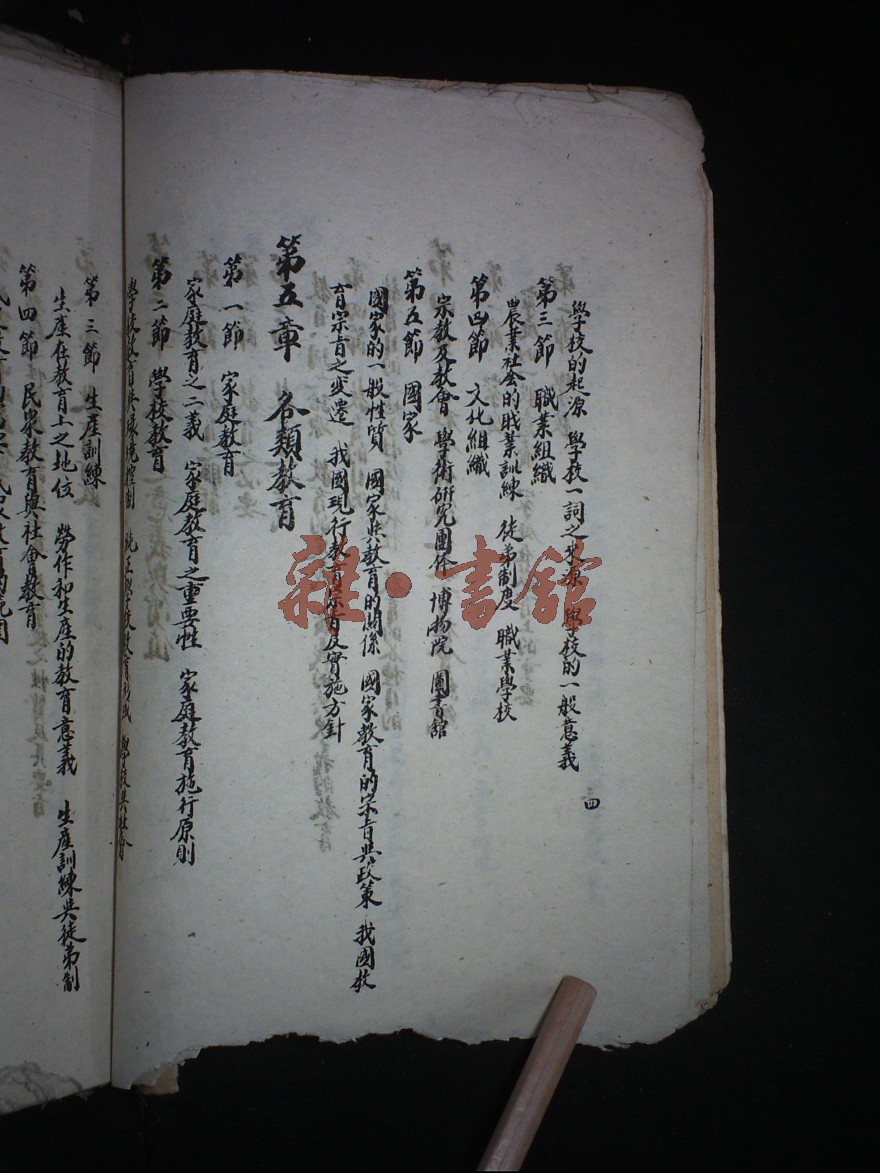 學校的起源 學校一詞之來源 學校的一般意義
第三節 職業組織
農業社会的職業訓練 徒弟制度 職業學校
第四節 文化組織
宗教及教會 學術研究團体 博物院 圖書舘
第五節 國家
國家的一般性質 國家與教育的關係 國家教育的宗旨與政策 我國教
育宗旨之变遷 我國現行教育宗旨及實施方針
第五章 各類教育
第一節 家庭教育
家庭教育之二義 家庭教育之重要性 家庭教育施行原則
第二節 學校教育
學校教育與環境控制 純正學校教育 學校與社會
第三節 生產訓練
生產在教育上之地位 勞作和生產的教育意義 生產訓練與徒弟制
第四節 民衆教育與社會教育
四
雜·書舘